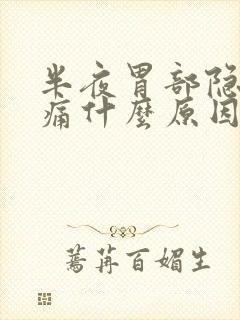 半夜胃部隐
痛什麼原因
蔫苒百媚生